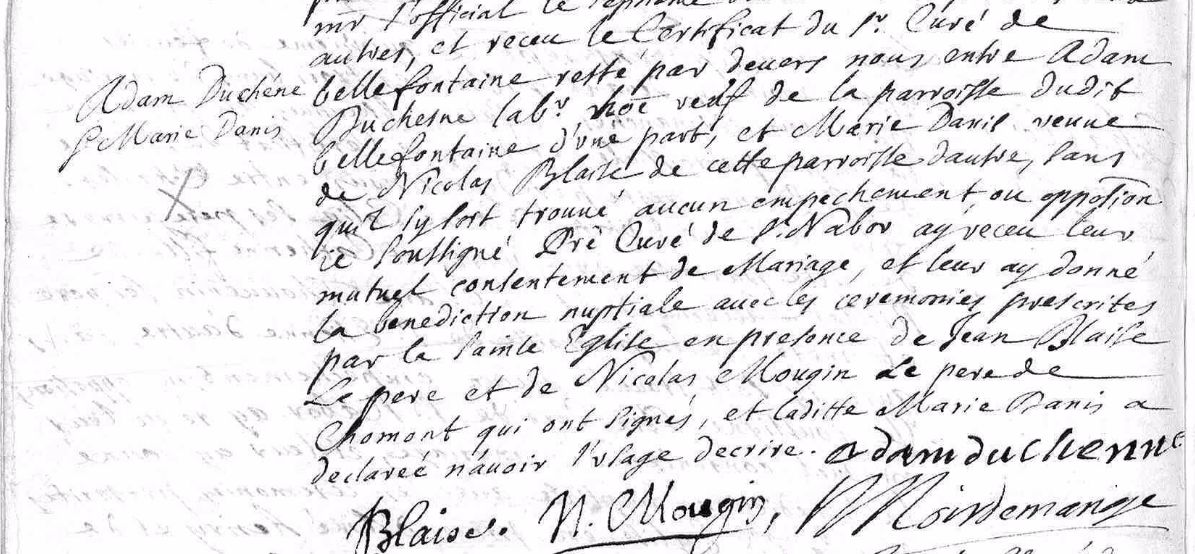 mr l'official le septieme
autres, et receu le Certificat du Sr. Curé de
Adam Duchéne
bellefontaine resté par devers nous entre Adam
Duchesne labr. veuf de la parroisse dudit
& Marie Danis
bellefontaine d'vne part, et Marie Danis veuue
de Nicolas Blaise de cette parroisse d'autre, sans
qu'il sy soit trouué aucun empechement, ou oppotion
ie soussigné Prê Curé de St. Nabor ay receu leur
mutuel consentement de Mariage, et leur ay donné
la benediction nuptiale auec les ceremonies prescrites
par la sainte Eglise en presence de Jean Blaise
Le pere et de Nicolas Mougin Le pere de
Chomont qui ont signés, et laditte Marie Danis a
declareé n'auoir l'vsage decrire. adam duchenne
Blaise. N. Mougin, Noirdemange